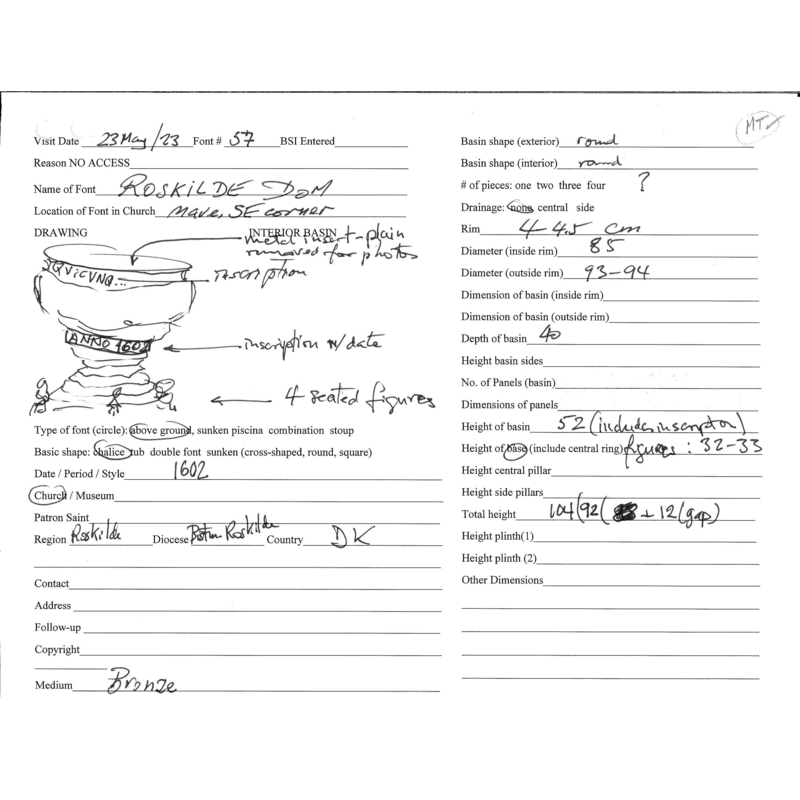 MT
Visit Date 23 May/23 Font # 57 BSI Entered
Reason NO ACCESS
Name of Font ROSKILDE DOM
Location of Font in Church Nave, SE corner
DRAWING INTERIOR BASIN
metal insert - plain
removed for photos
QVICVNQ...
inscription
ANNO 1602
inscription w/ date
4 seated figures
Type of font (circle): above ground, sunken piscina combination stoup
Basic shape: chalice tub double font sunken (cross-shaped, round, square)
Date / Period / Style 1602
Church / Museum
Patron Saint
Region Roskilde Diocese Roskilde Country DK
Contact
Address
Follow-up
Copyright
Medium Bronze
Basin shape (exterior) round
Basin shape (interior) round
# of pieces: one two three four ?
Drainage: none central side
Rim 4-4.5 cm
Diameter (inside rim) 85
Diameter (outside rim) 93-94
Dimension of basin (inside rim)
Dimension of basin (outside rim)
Depth of basin 40
Height basin sides
No. of Panels (basin)
Dimensions of panels
Height of basin 52 (includes inscription)
Height of base (include central ring) figures: 32-33
Height central pillar
Height side pillars
Total height 104 (92 ( + 12 (gap)
Height plinth(1)
Height plinth (2)
Other Dimensions